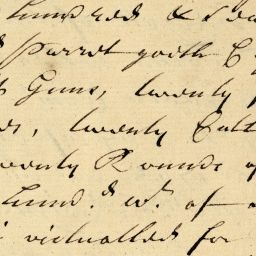 hundred & se
Parrot with C
Guns, twenty
twenty Cutl
wenty Rounds of
Hund.d wt. of
victualled for